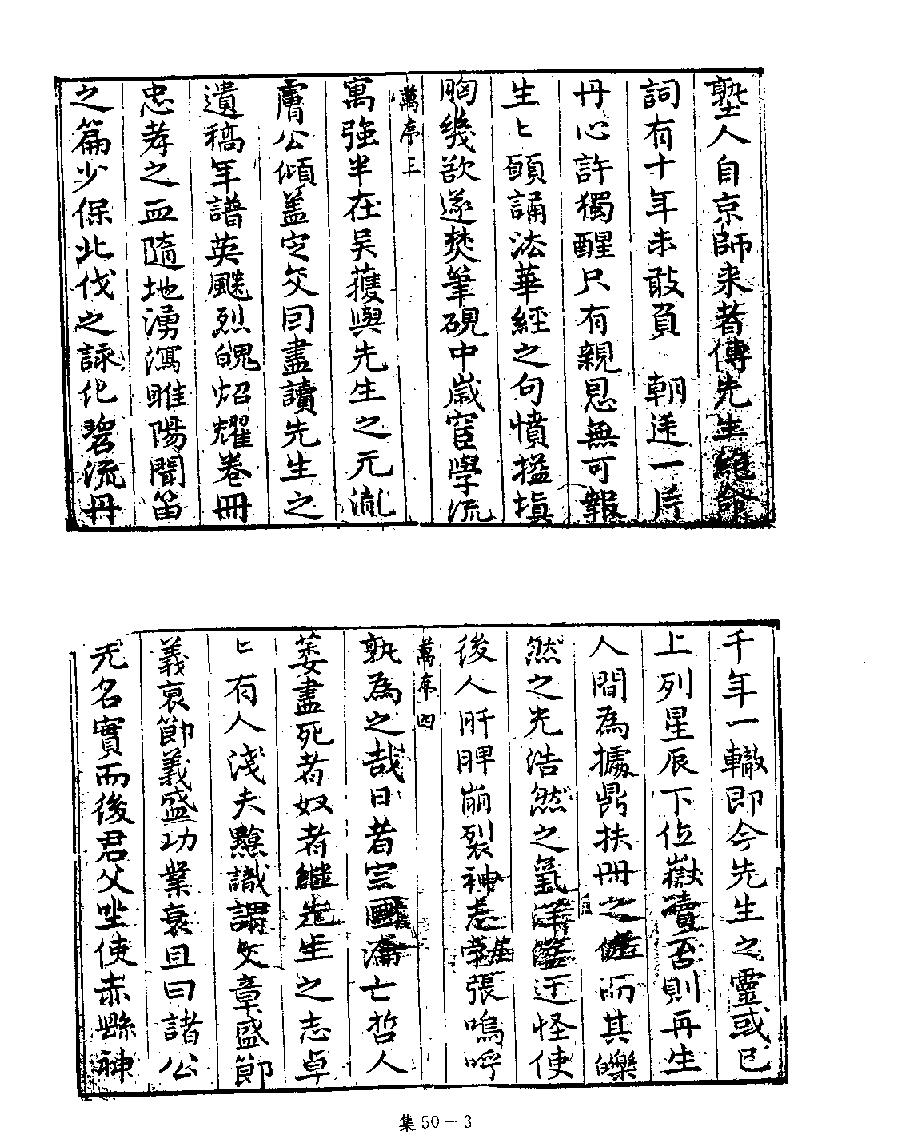 塾人自京師来者傳先生絕命
詞有十年未敢負 朝廷一片
丹心許獨醒只有親恩無可報
生〻願誦法華經之句憤搤塡
胸幾欲遂焚筆硯中歲宦學流
萬序三
寓強半在吴獲與先生之元胤
膚公傾盖定交囙盡讀先生之
遺稿年譜英颷烈魄炤耀卷冊
忠孝之血隨地湧瀉睢陽聞笛
之篇少保北伐之詠化碧流丹
千年一轍即今先生之靈或已
上列星辰下位嶽瀆否則再生
人間為據鼎扶冊之 而其皪
然之光浩然之氣 迂怪使
後人肝脾崩裂神志 張嗚呼
萬序四
孰為之哉日者宗國淪亡哲人
萎盡死者奴者継先生之志卓
〻有人淺夫尠識謂文章盛節
義衰節義盛功業衰且曰諸公
无名實而後君父坐使赤縣神
集50－3